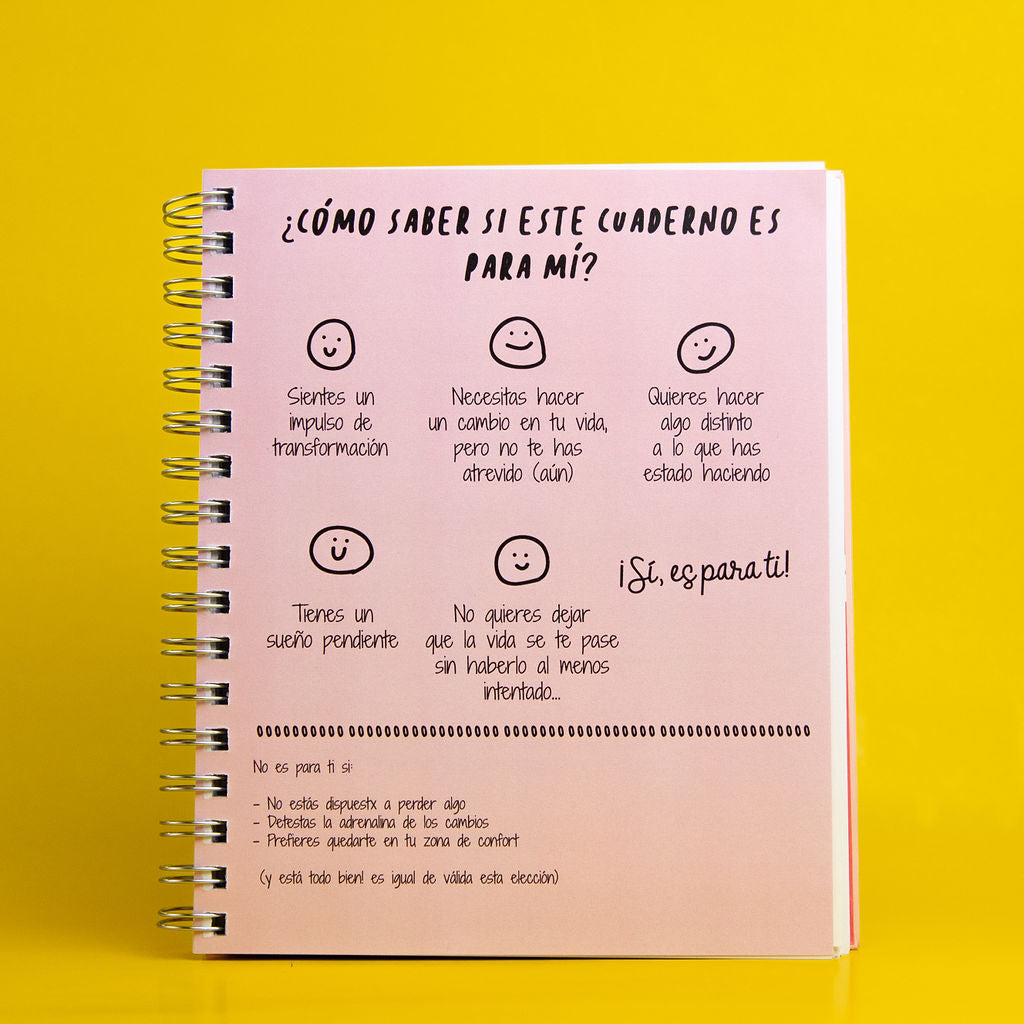 ¿CÓMO SABER SI ESTE CUADERNO ES
PARA MÍ?
Sientes un
impulso de
transformación
Necesitas hacer
un cambio en tu vida,
pero no te has
atrevido (aún)
Quieres hacer
algo distinto
a lo que has
estado haciendo
Tienes un
sueño pendiente
No quieres dejar
que la vida se te pase
sin haberlo al menos
intentado...
¡Sí, es para ti!
No es para ti si:
- No estás dispuestx a perder algo
- Detestas la adrenalina de los cambios
- Prefieres quedarte en tu zona de confort
(y está todo bien! es igual de válida esta elección)